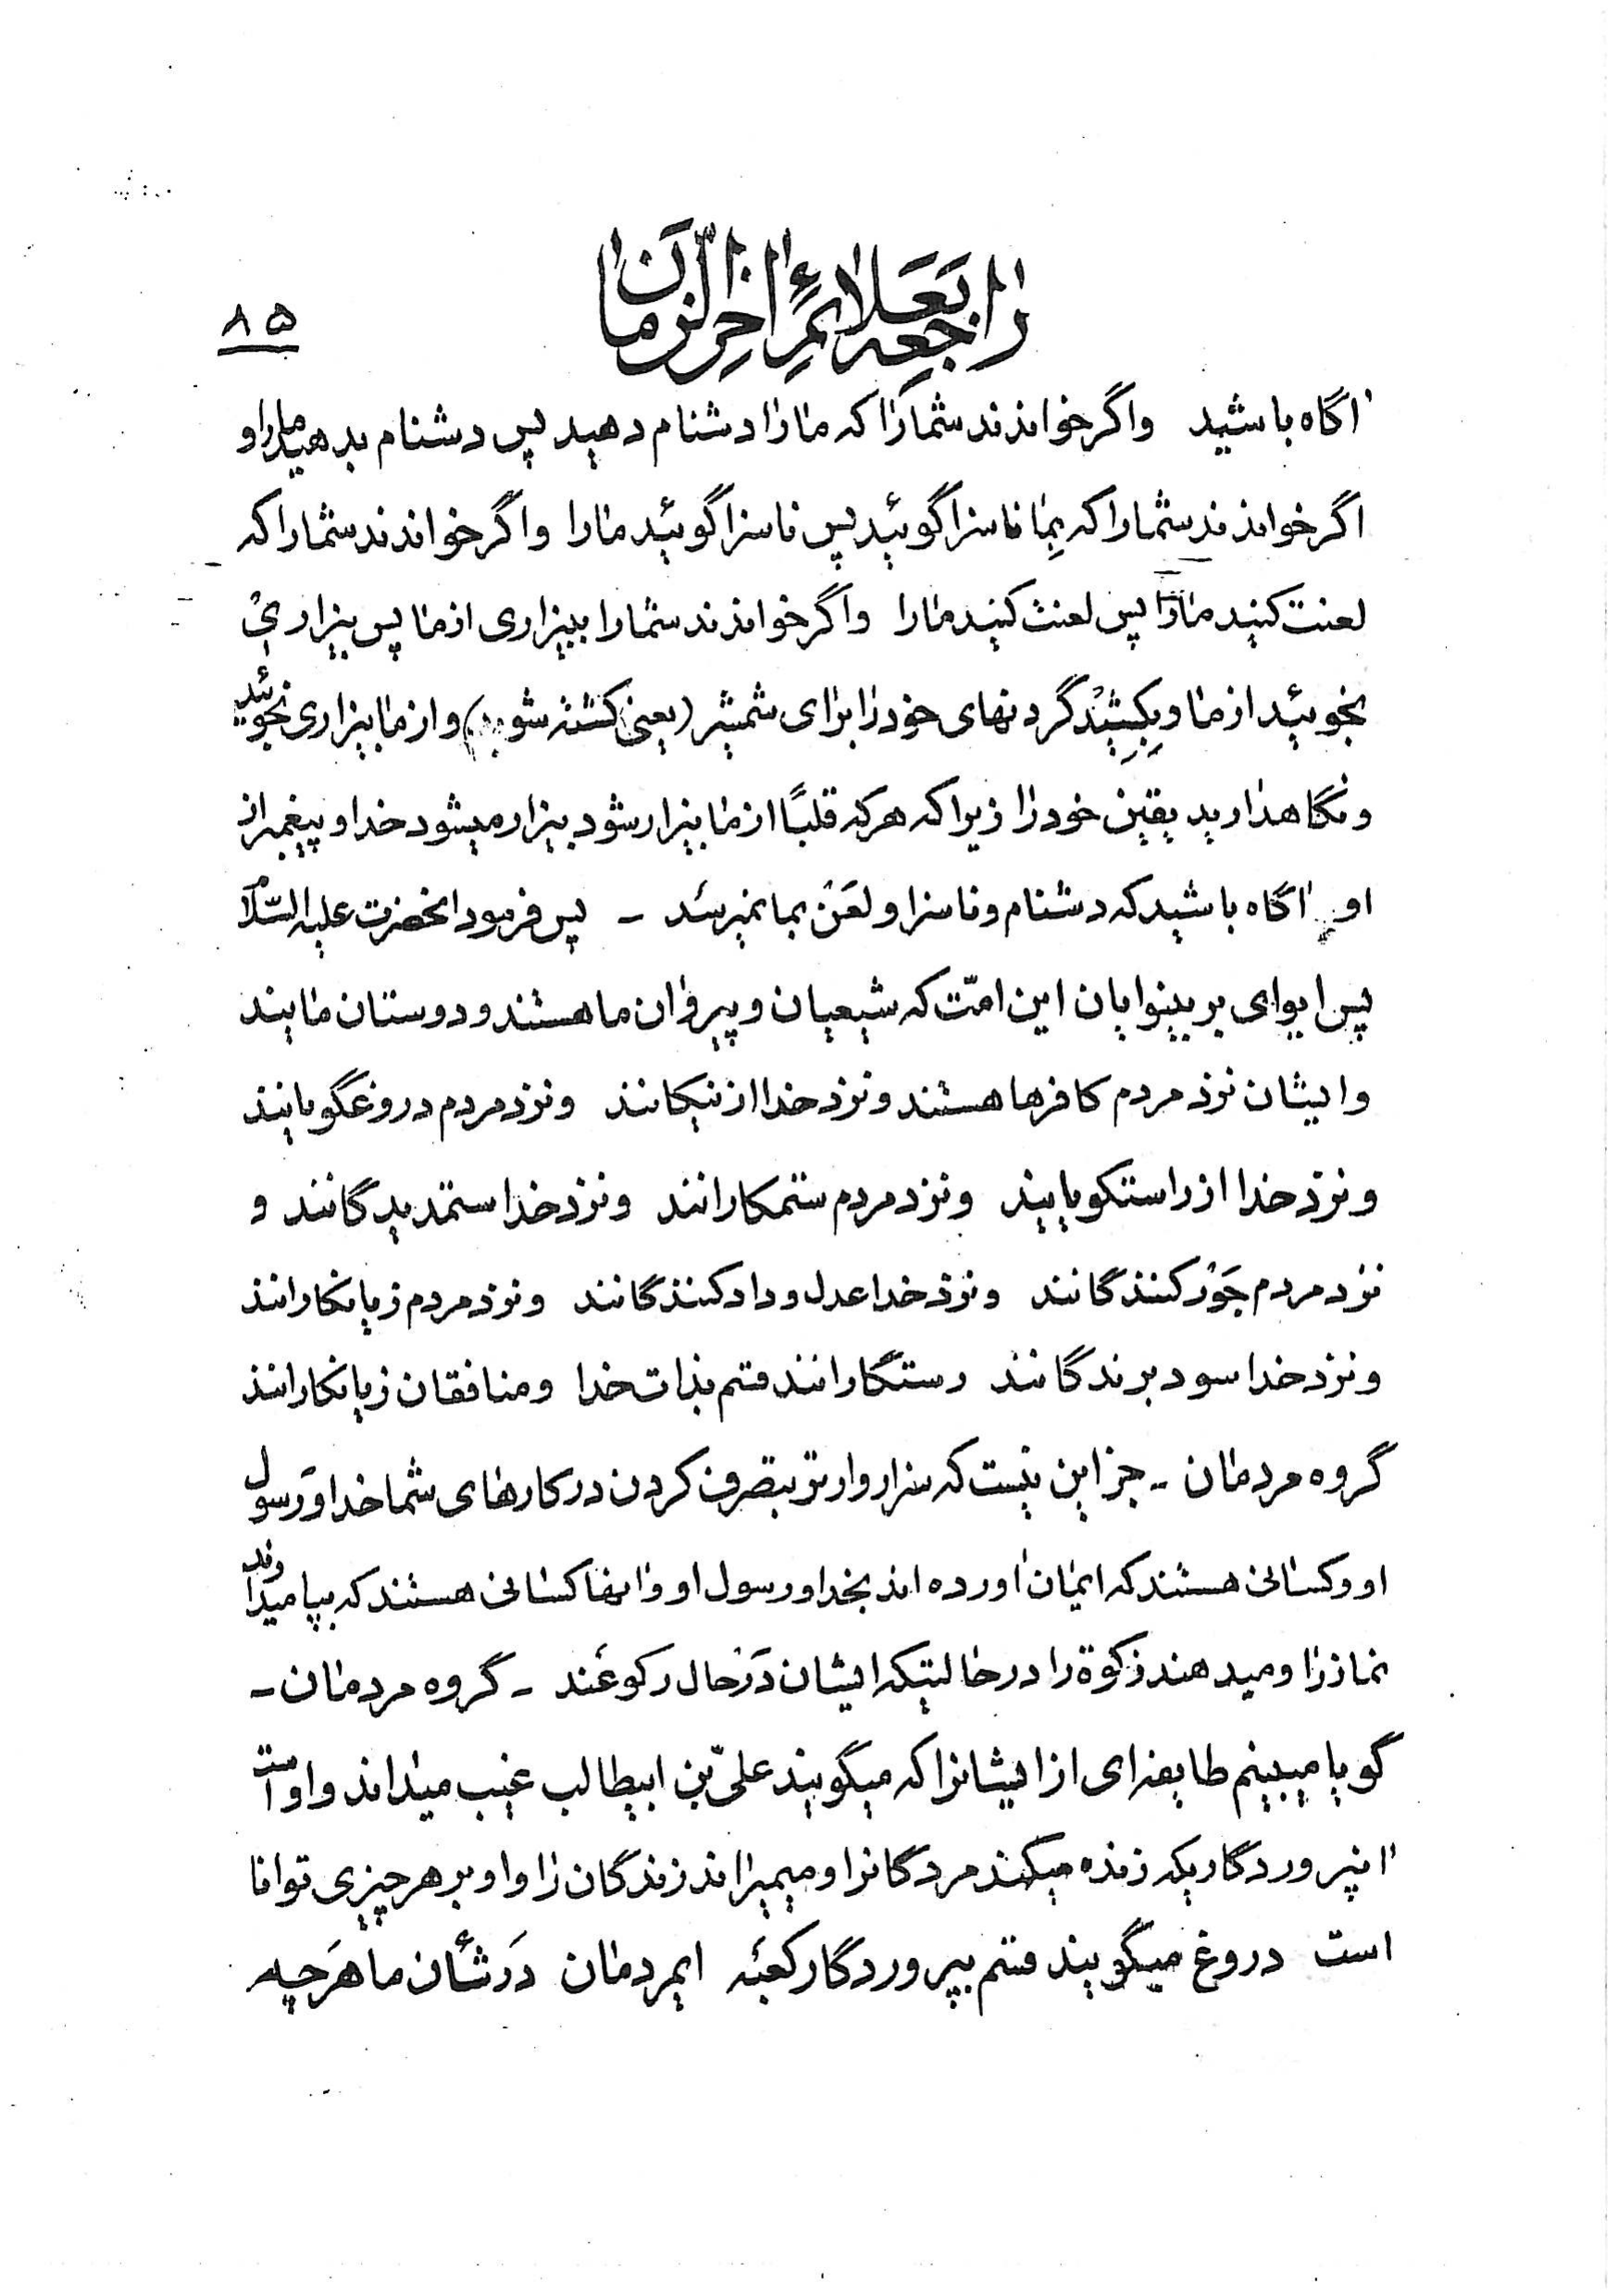 راجعه بعلائم آخر الزمان
۸۵
آگاه باشید واگر خواندند شما را که ما را دشنام دهید پس دشنام بدهید ما را و
اگر خواندند شما را که بما ناسزا گوئید پس ناسزا گوئید ما را واگر خواندند شما را که
لعنت کنید ما را پس لعنت کنید ما را واگر خواندند شما را ببیزاری از ما پس بیزاری
نجوئید از ما وبکشید گردنهای خود را برای شمشیر (یعنی کشته شوید) واز ما بیزاری نجوئید
ونگاهدارید یقین خود را زیرا که هر که قلبًا از ما بیزار شود بیزار میشود خدا و پیغمبر از
او آگاه باشید که دشنام وناسزا ولعن بما نمیرسد - پس فرمود آنحضرت علیه السّلام
پس ایوای بر بینوایان این امّت که شیعیان و پیروان ما هستند و دوستان مایند
وایشان نزد مردم کافرها هستند ونزد خدا از نیکانند ونزد مردم دروغگویانند
ونزد خدا از راستگویانند ونزد مردم ستمکارانند ونزد خدا ستمدیدگانند و
نزد مردم جور کنندگانند ونزد خدا عدل وداد کنندگانند ونزد مردم زیانکارانند
ونزد خدا سود برندگانند رستگارانند قسم بذات خدا ومنافقان زیانکارانند
گروه مردمان - جز این نیست که سزاروارتر بتصرف کردن در کارهای شما خدا ورسول
او وکسانی هستند که ایمان آورده اند بخدا ورسول او وآنها کسانی هستند که بپا میدارند
نماز را ومیدهند زکوة را در حالتیکه ایشان در حال رکوعند - گروه مردمان -
گویا میبینم طایفه ای از ایشانرا که میگویند علیّ بن ابیطالب غیب میداند واو است
آنپروردگاریکه زنده میکند مردگانرا ومیمیراند زندگان را واو بر هر چیزی توانا
است دروغ میگویند قسم بپروردگار کعبه ایمردمان در شأن ما هر چه